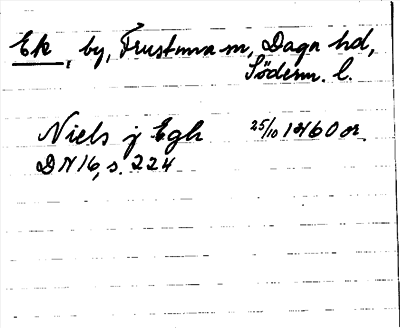 Ek, by, Trustuna sn, Daga hd,
Söderm. l.
Niels j Egh 25/10 1460 or.
DN 16, s. 224